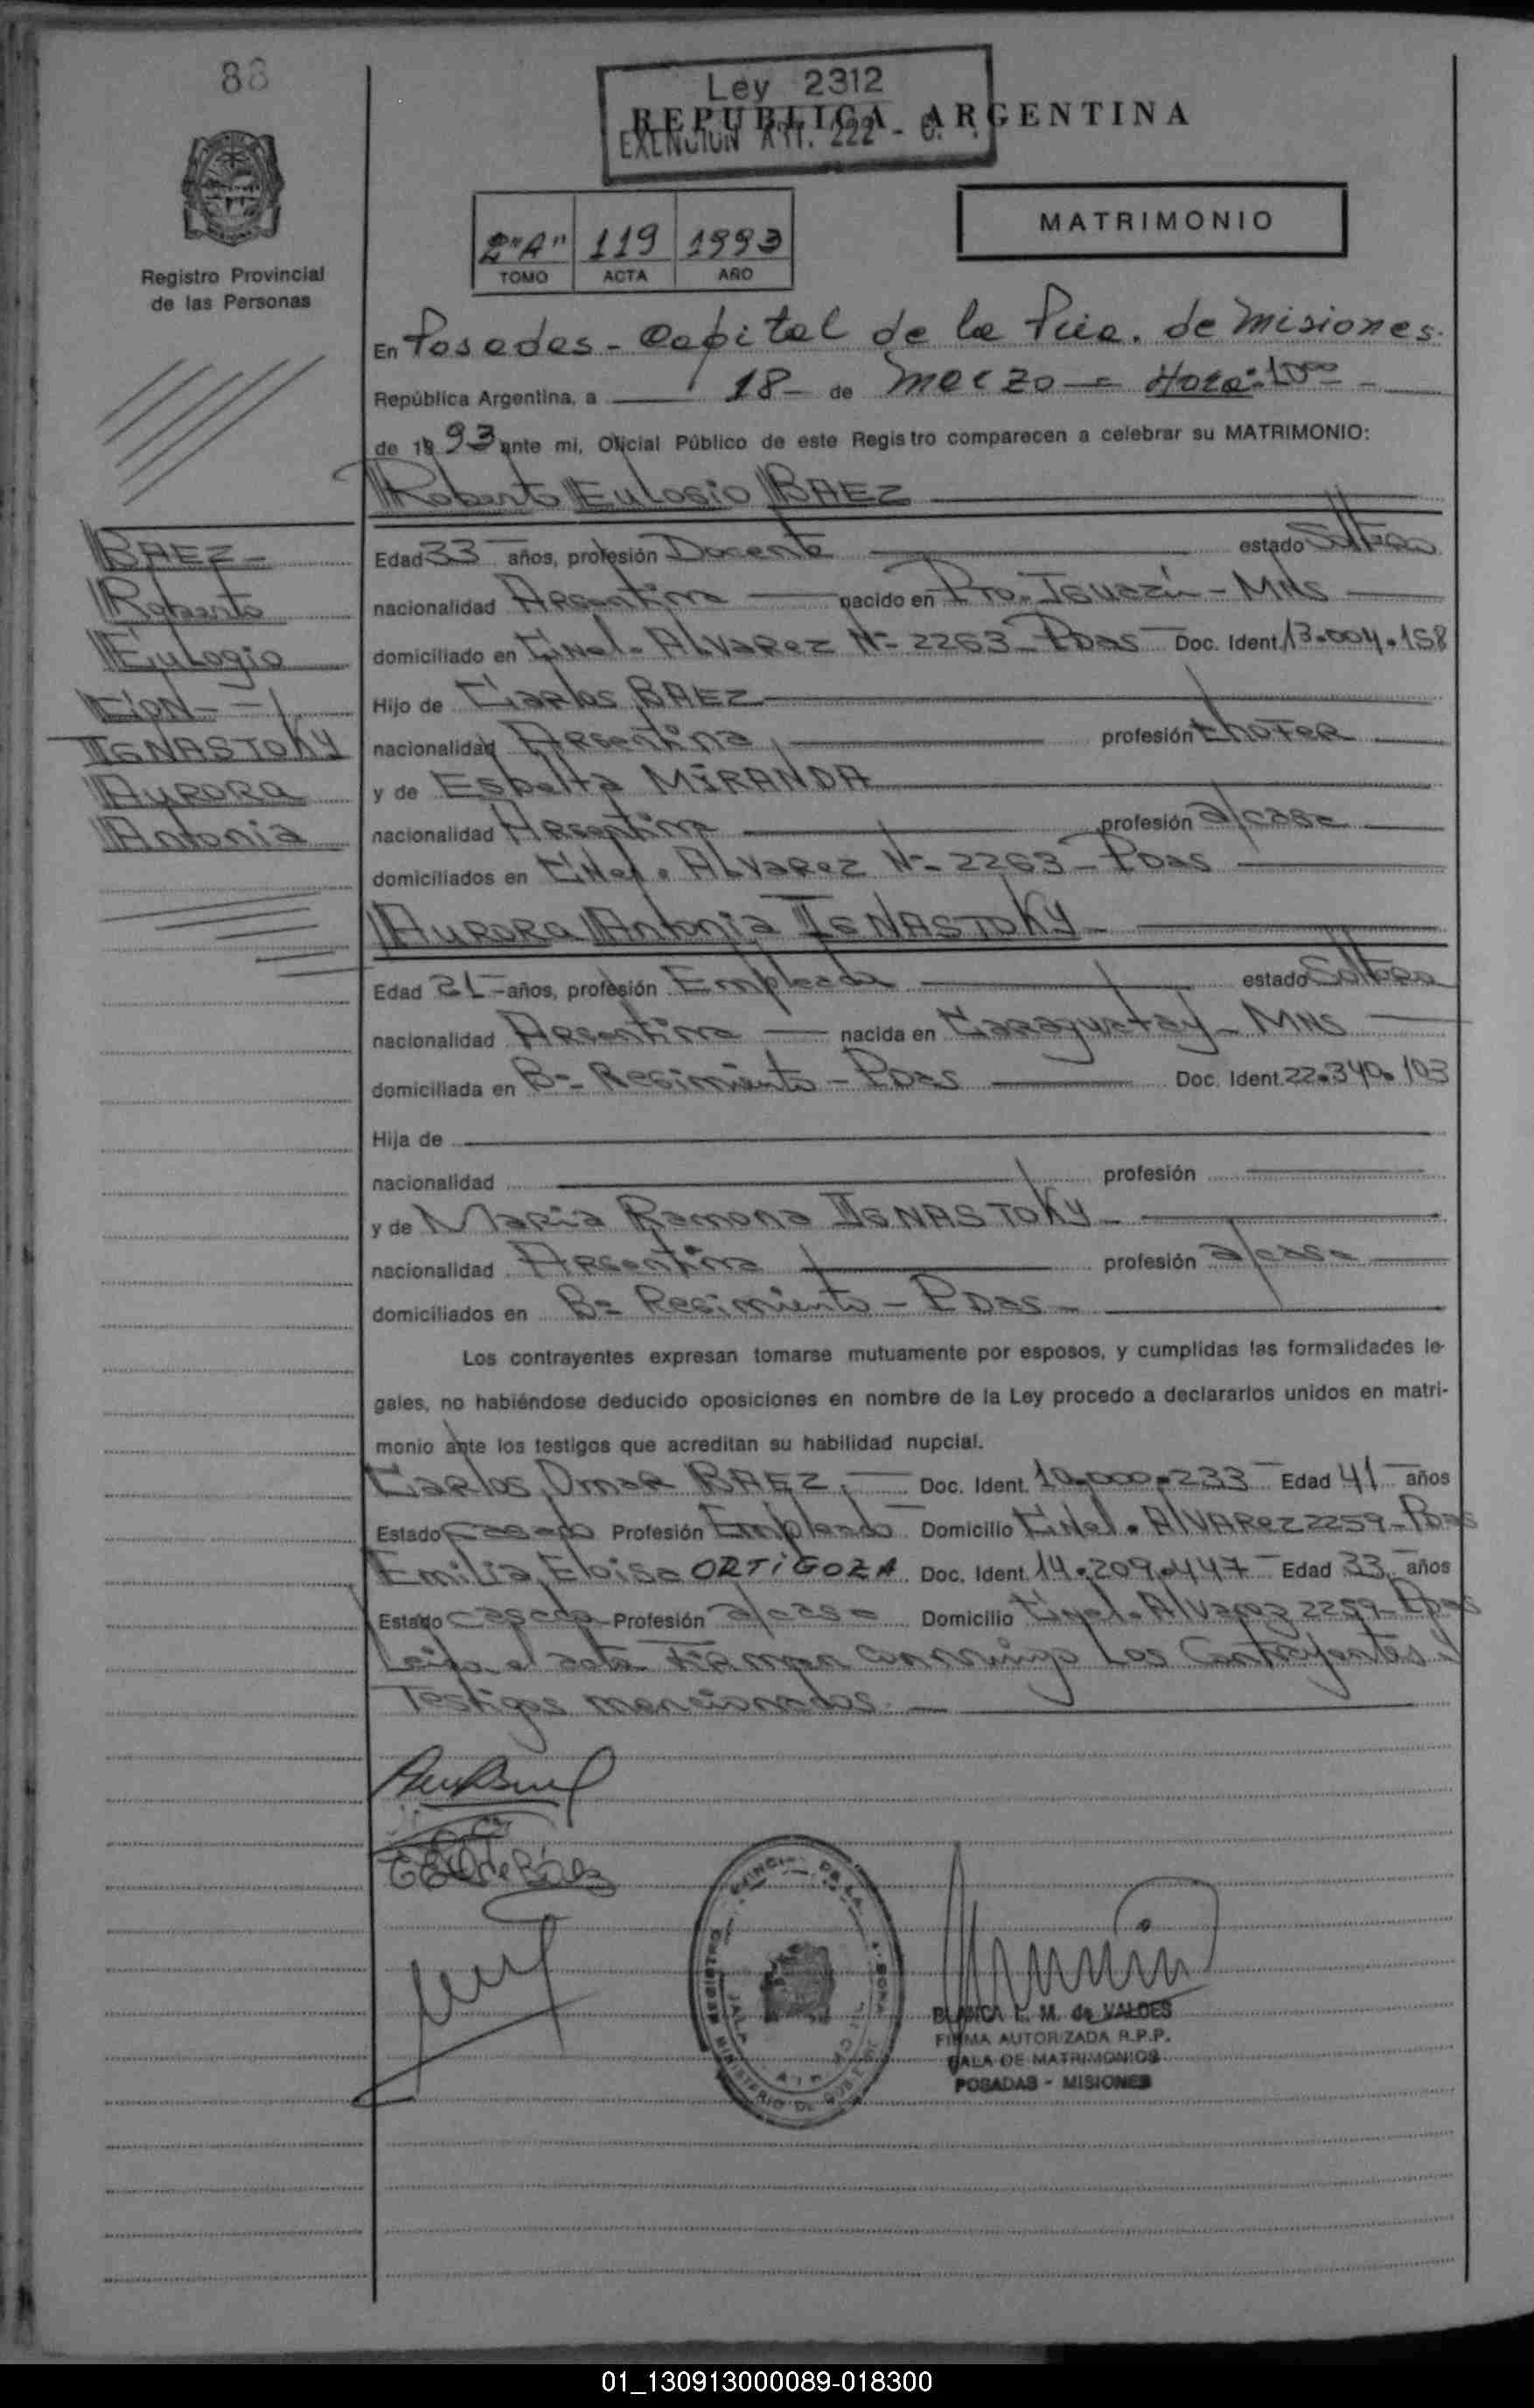 88
Ley 2312
REPUBLICA ARGENTINA
EXENCION ART. 222 -
2"A" 119 1993
TOMO ACTA AÑO
MATRIMONIO
Registro Provincial
de las Personas
En Posadas - Capital de la Pcia. de Misiones.
República Argentina, a 18 - de Marzo - Hora: 10⁰⁰ -
de 1993 ante mi, Oficial Público de este Registro comparecen a celebrar su MATRIMONIO:
Roberto Eulogio BAEZ
BAEZ -
Roberto
Eulogio
Con -
IGNASTOKY
Aurora
Antonia
Edad 33 años, profesión Docente estado Soltero
nacionalidad Argentina nacido en Pto. Iguazú - MNS
domiciliado en Cnel. Alvarez Nº 2263 - Pdas Doc. Ident. 13.004.158
Hijo de Carlos BAEZ
nacionalidad Argentina profesión Chofer
y de Esbelta MIRANDA
nacionalidad Argentina profesión a/casa
domiciliados en Cnel. Alvarez Nº 2263 - Pdas
Aurora Antonia IGNASTOKY
Edad 21 - años, profesión Empleada estado Soltera
nacionalidad Argentina nacida en Caraguatay - MNS
domiciliada en Bº Regimiento - Pdas Doc. Ident. 22.340.103
Hija de
nacionalidad profesión
y de Maria Ramona IGNASTOKY
nacionalidad Argentina profesión a/casa
domiciliados en Bº Regimiento - Pdas
Los contrayentes expresan tomarse mutuamente por esposos, y cumplidas las formalidades le-
gales, no habiéndose deducido oposiciones en nombre de la Ley procedo a declararlos unidos en matri-
monio ante los testigos que acreditan su habilidad nupcial.
Carlos Omar BAEZ Doc. Ident. 10.000.233 Edad 41 años
Estado Casado Profesión Empleado Domicilio Cnel. Alvarez 2259 - Pdas
Emilia Eloisa ORTIGOZA Doc. Ident. 14.209.447 Edad 33 años
Estado casada Profesión a/casa Domicilio Cnel. Alvarez 2259 - Pdas
Leida el acta Firman conmigo Los Contrayentes y
Testigos mencionados
BLANCA L. M. de VALDES
FIRMA AUTORIZADA R.P.P.
SALA DE MATRIMONIOS
POSADAS - MISIONES
01_130913000089-018300